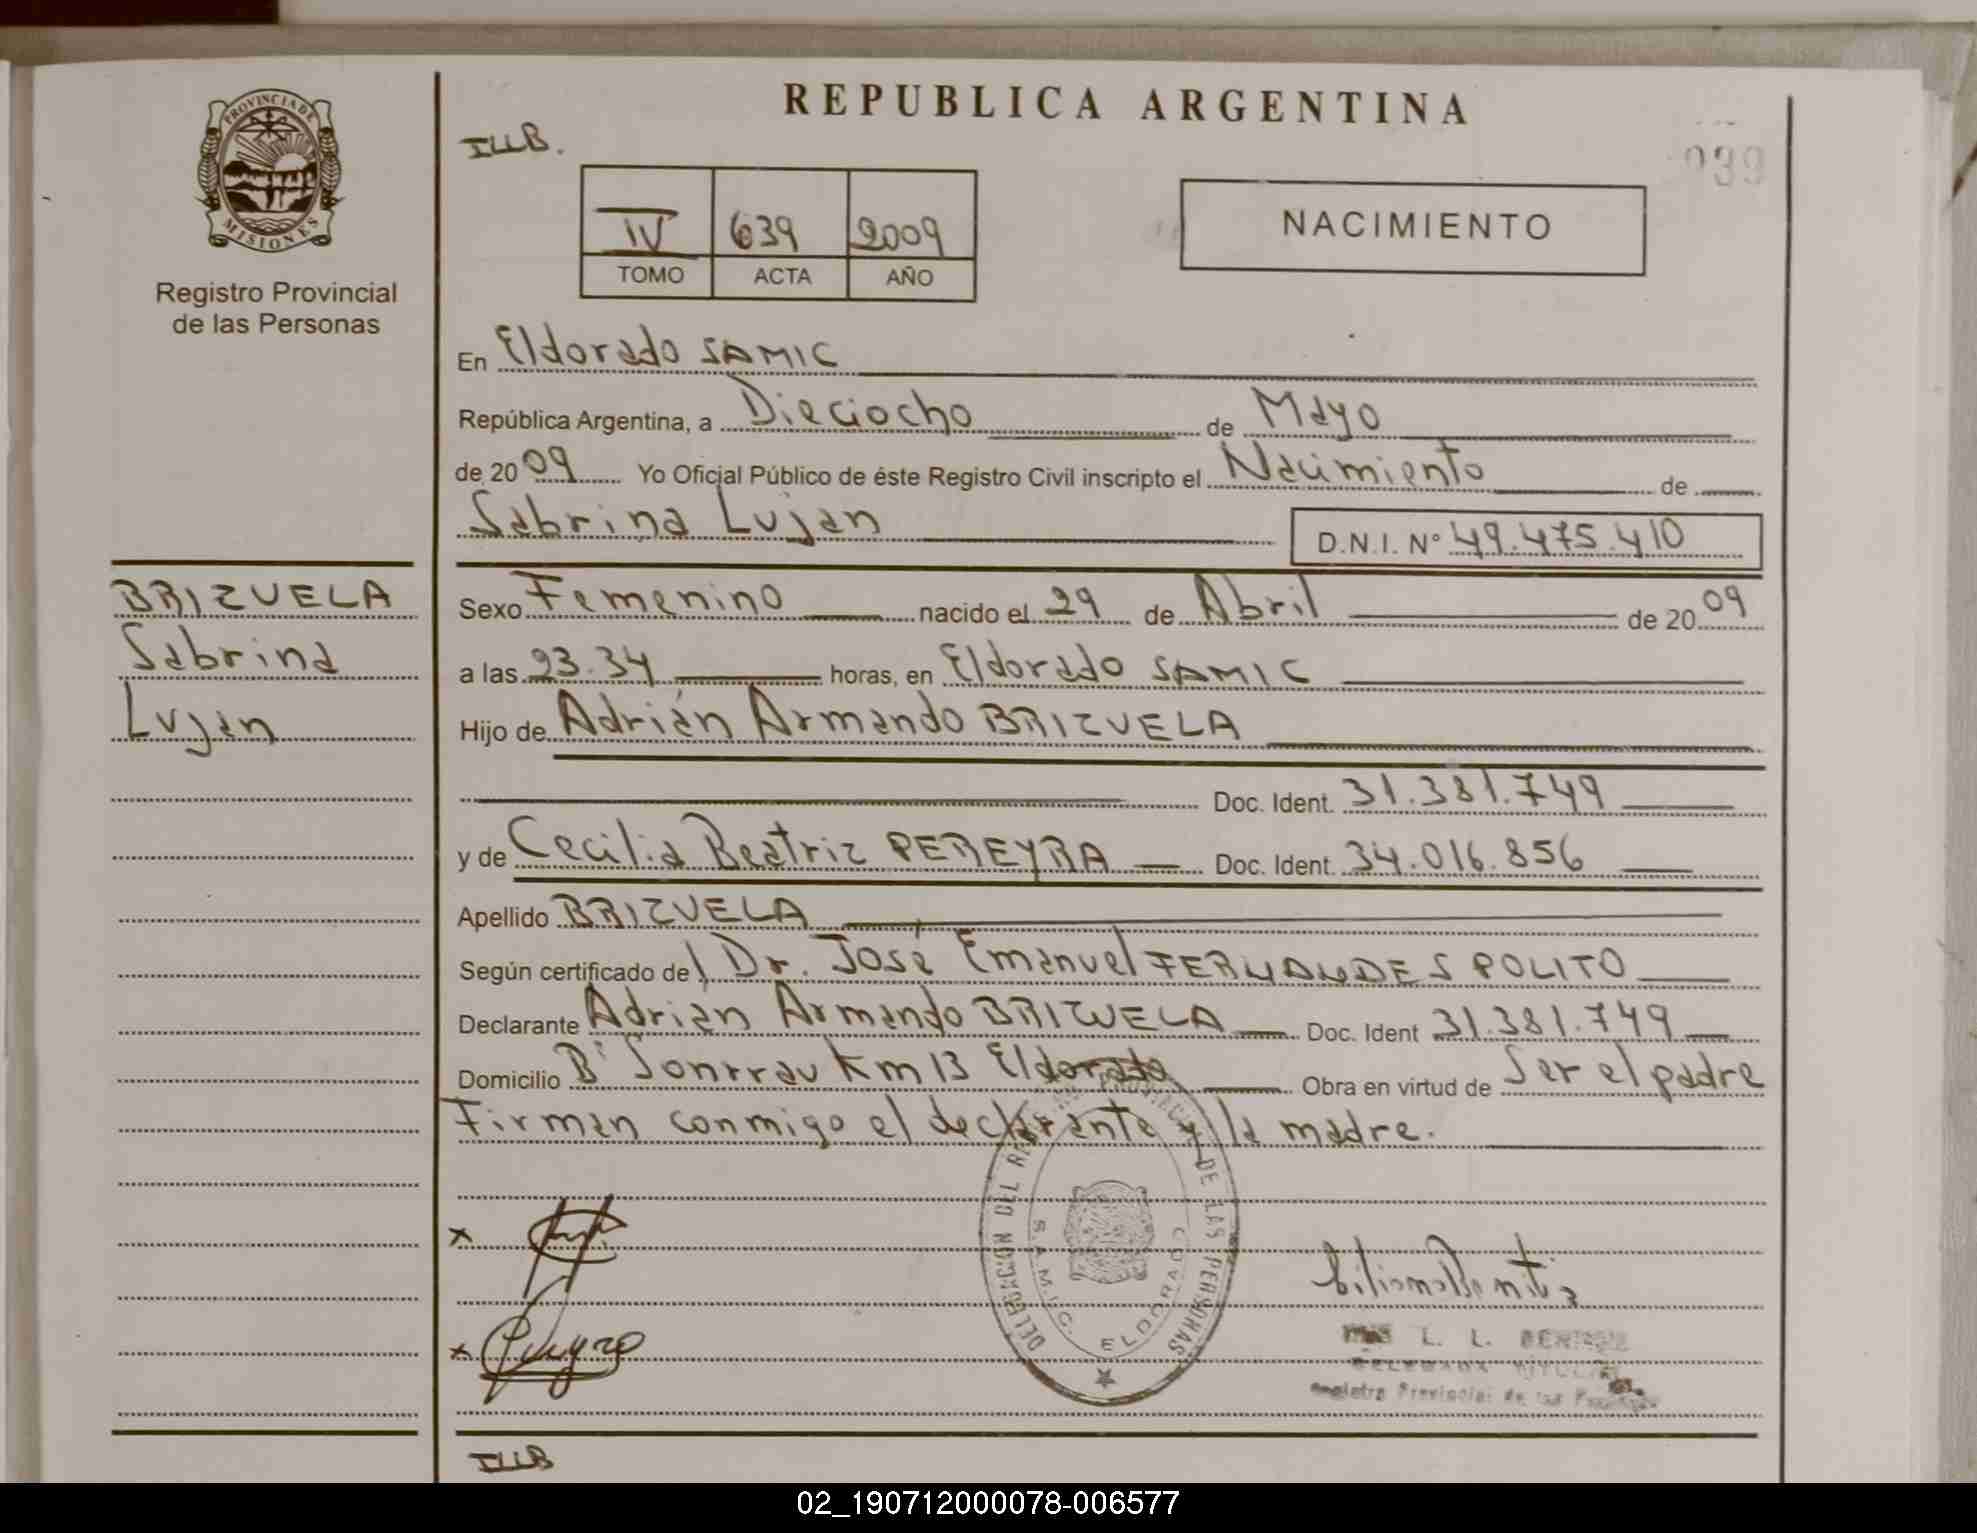 REPUBLICA ARGENTINA
PROVINCIA DE
MISIONES
Registro Provincial
de las Personas
ILLB.
039
IV 639 2009
TOMO ACTA AÑO
NACIMIENTO
En Eldorado SAMIC
República Argentina, a Dieciocho de Mayo
de 2009 Yo Oficial Público de éste Registro Civil inscripto el Nacimiento de
Sabrina Lujan D.N.I. Nº 49.475.410
BRIZUELA
Sabrina
Lujan
Sexo Femenino nacido el 29 de Abril de 2009
a las 23.34 horas, en Eldorado SAMIC
Hijo de Adrián Armando BRIZUELA
Doc. Ident. 31.381.749
y de Cecilia Beatriz PEREYRA Doc. Ident. 34.016.856
Apellido BRIZUELA
Según certificado del Dr. José Emanuel FERNANDES POLITO
Declarante Adrián Armando BRIZUELA Doc. Ident 31.381.749
Domicilio Bº Km 13 Eldorado Obra en virtud de Ser el padre
Firman conmigo el declarante y la madre.
DELEGACION DEL PROVINCIAL DE LAS PERSONAS
S.A.M.I.C. ELDORADO
x
x
L. L.
Registro Provincial de las
ILLB
02_190712000078-006577